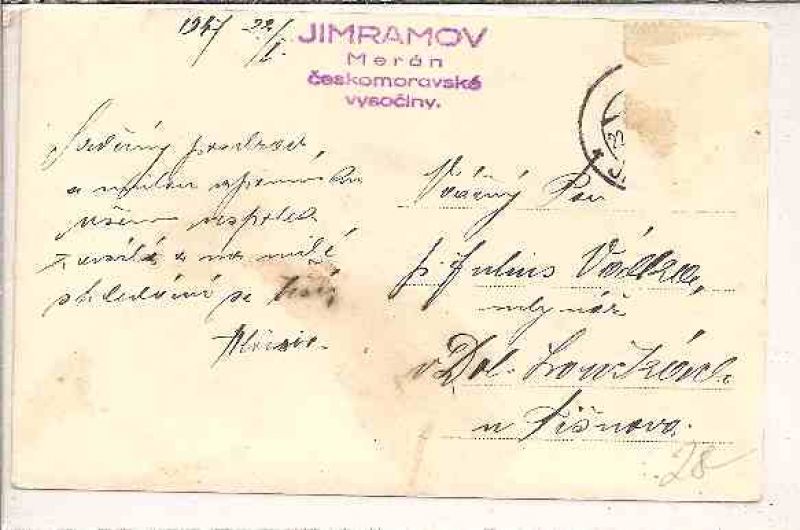 1947 22/I.
JIMRAMOV
Merán
českomoravské
vysočiny.
Srdečný pozdrav
a milou vzpomínku
všem
zasílá a na milé
shledání se těší
Vážený Pan
p. Julius
mlynář
v Dol. Loučkách
u Tišnova.
28